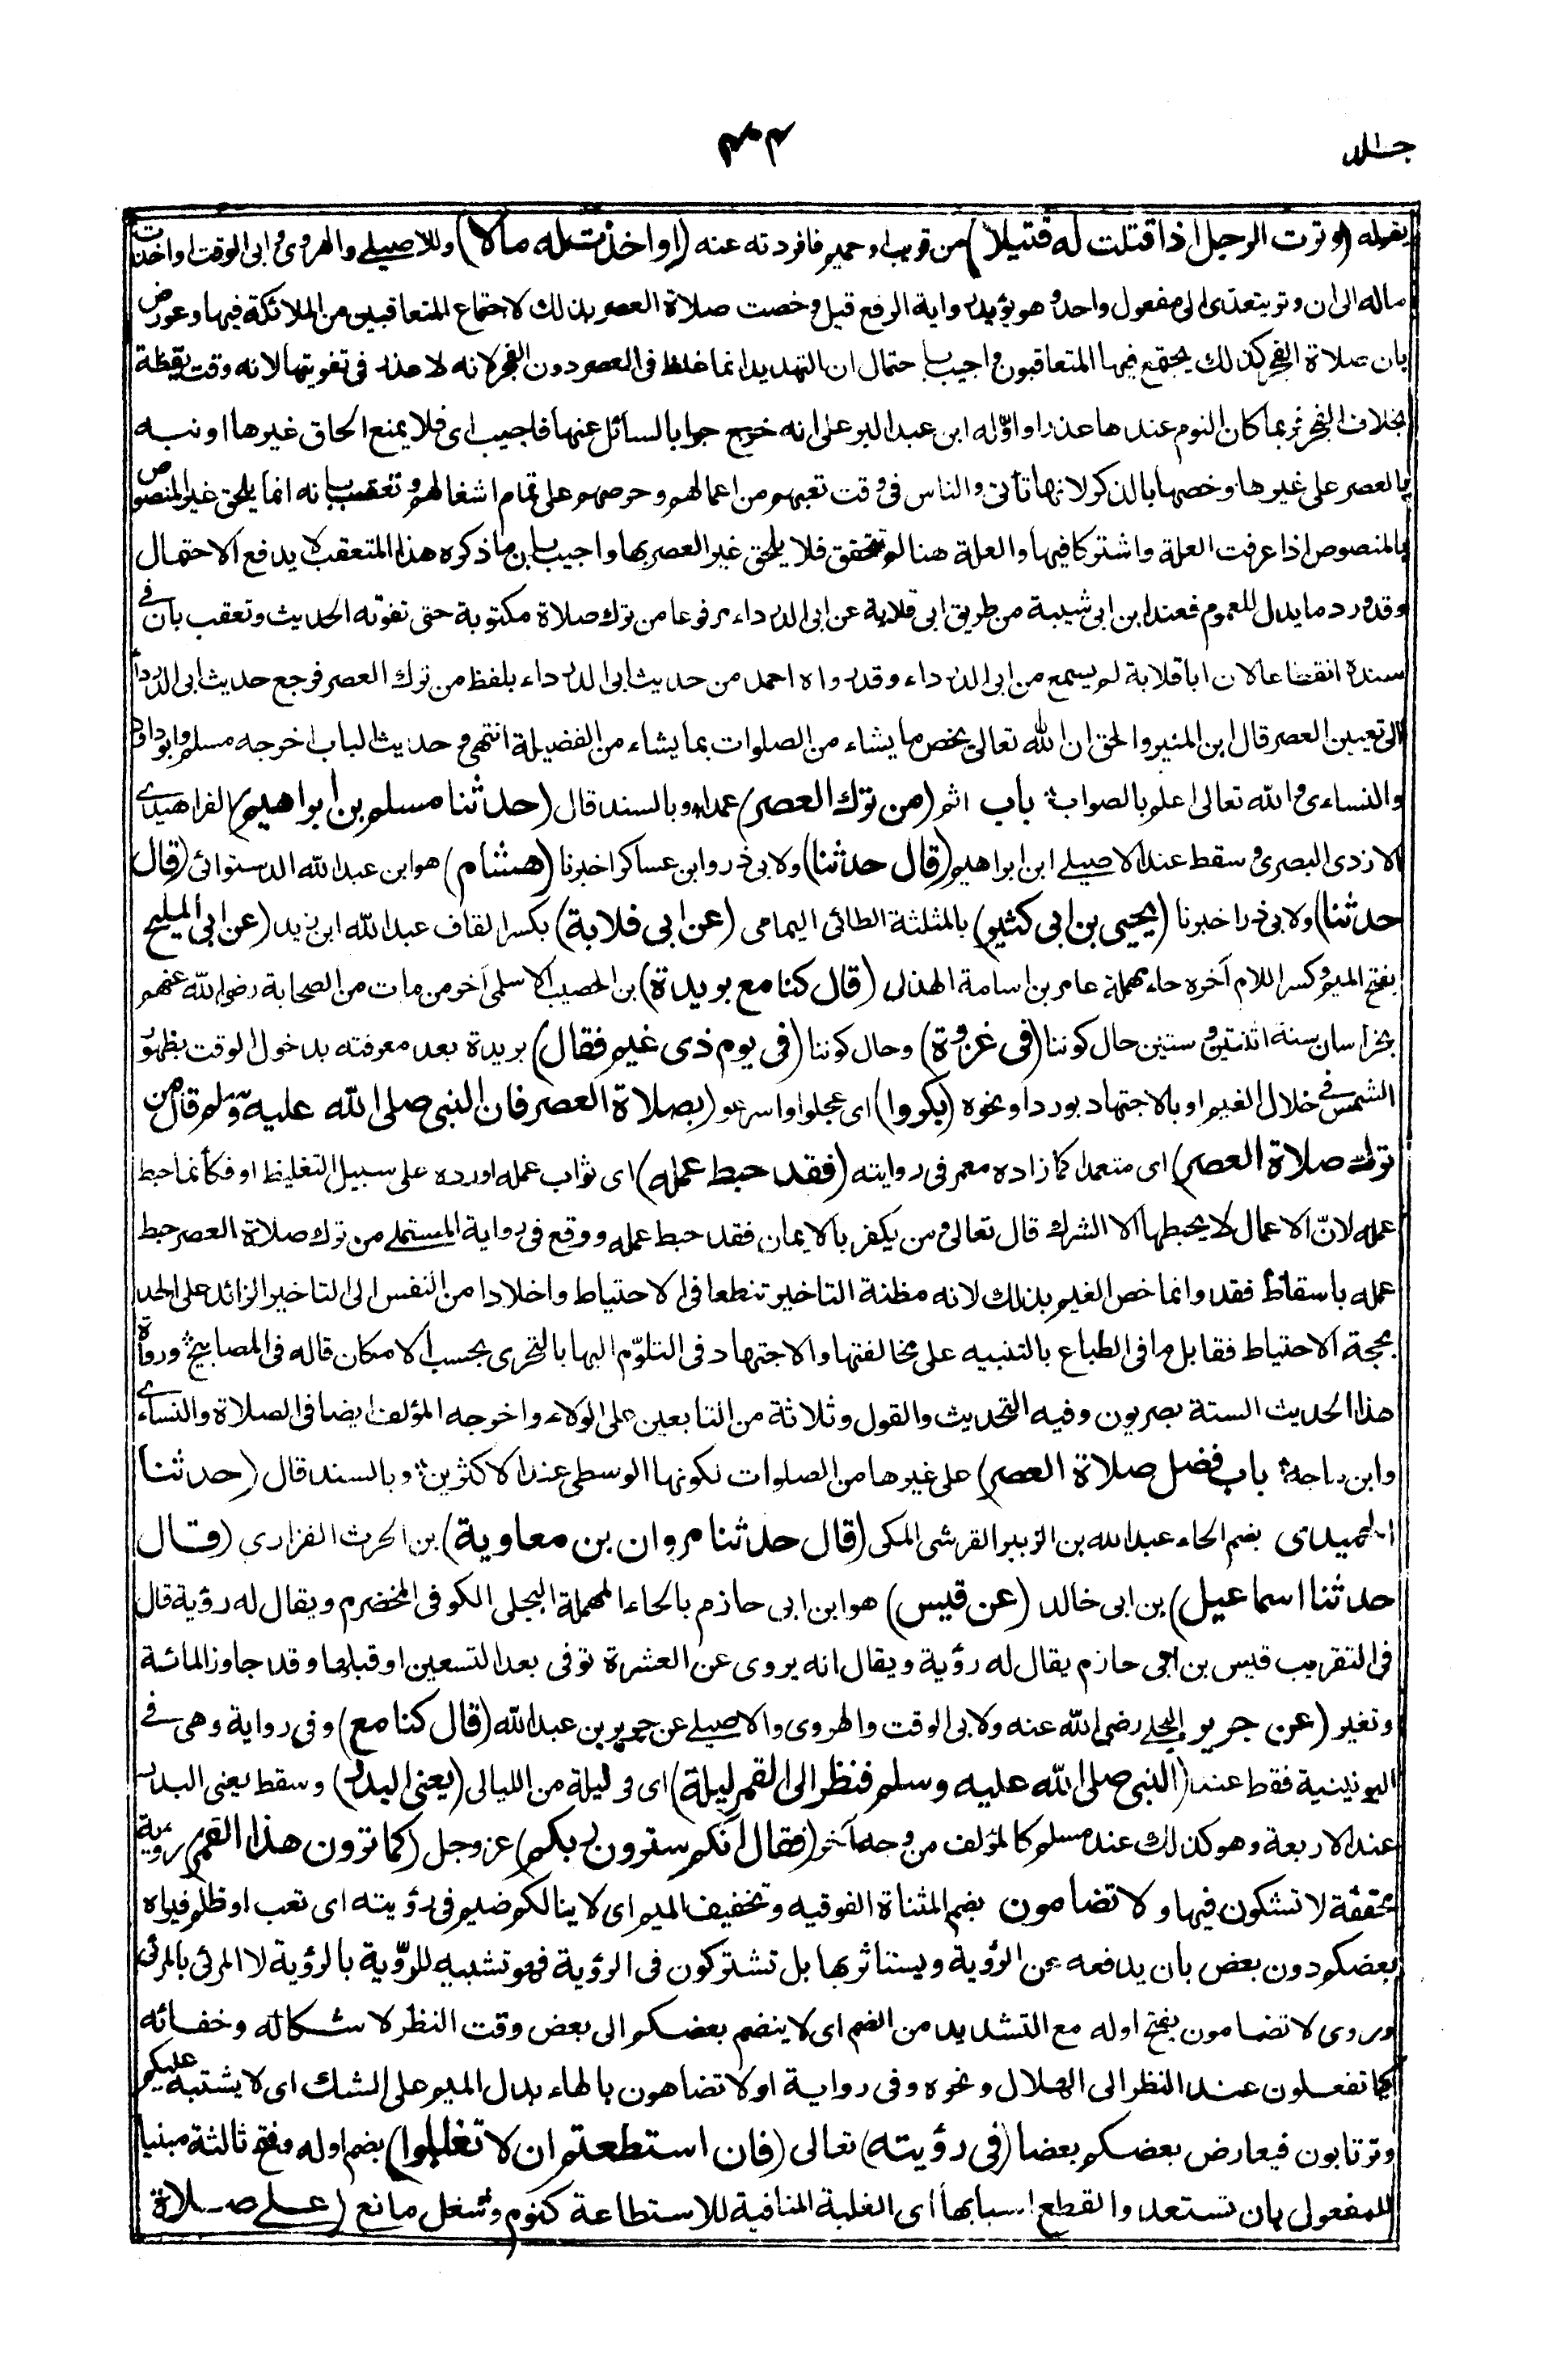 جلد
بقوله (وترت الرجل اذا قتلت له قتيلا) من قريب او حميم فافردته عنه (او اخذت له مالا) وللاصيلى والهروى وابى الوقت او اخذت
ماله الى ان وتر يتعدى الى مفعول واحد وهو يؤيد رواية الرفع قيل وخصت صلاة العصر بذلك لاجتماع المتعاقبين من الملائكة فيها وعورض
بان صلاة الفجر كذلك يجتمع فيها المتعاقبون واجيب باحتمال ان التهديد انما غلظ فى العصر دون الفجر لانه لا عذر فى تفويتها لانه وقت يقظة
بخلاف الفجر فربما كان النوم عندها عذرا واوّله ابن عبد البر على انه خرج جوابا لسائل عنها فاجيب اى فلا يمنع الحاق غيرها او نبه
بالعصر على غيرها وخصها بالذكر لانها تأتى والناس فى وقت تعبهم من اعمالهم وحرصهم على تمام اشغالهم وتعقب بانه انما يلحق غير المنصوص
بالمنصوص اذا عرفت العلة واشتركا فيها والعلة هنا لم تتحقق فلا يلحق غير العصر بها واجيب بان ما ذكره هذا المتعقب لا يدفع الاحتمال
وقد ورد ما يدل للعموم فعند ابن ابى شيبة من طريق ابى قلابة عن ابى الدرداء مرفوعا من ترك صلاة مكتوبة حتى تفوته الحديث وتعقب بان فى
سنده انقطاعا لان ابا قلابة لم يسمع من ابى الدرداء وقد رواه احمد من حديث ابى الدرداء بلفظ من ترك العصر فرجع حديث ابى الدرداء
الى تعيين العصر قال ابن المنير والحق ان الله تعالى يخص ما يشاء من الصلوات بما يشاء من الفضيلة انتهى وحديث الباب اخرجه مسلم وابو داود
والنساءى والله تعالى اعلم بالصواب باب اثم (من ترك العصر) عمدا وبالسند قال (حدثنا مسلم بن ابراهيم) الفراهيدى
الازدى البصرى وسقط عند الاصيلى ابن ابراهيم (قال حدثنا) ولابى ذر وابن عساكر اخبرنا (هشام) هو ابن عبد الله الدستوائى (قال
حدثنا) ولابى ذر اخبرنا (يحيى بن ابى كثير) بالمثلثة الطائى اليمامى (عن ابى قلابة) بكسر القاف عبد الله ابن زيد (عن ابى المليح
بفتح الميم وكسر اللام آخره حاء مهملة عامر بن اسامة الهذلى (قال كنا مع بريدة) بن الحصيب الاسلمى آخر من مات من الصحابة رضى الله عنهم
بخراسان سنة اثنتين وستين حال كوننا (فى غزوة) وحال كوننا (فى يوم ذى غيم فقال) بريدة بعد معرفته بدخول الوقت بظهور
الشمس فى خلال الغيم او بالاجتهاد بورد او نحوه (بكروا) اى عجلوا واسرعو (بصلاة العصر فان النبى صلى الله عليه وسلم قال من
ترك صلاة العصر) اى متعمدا كما زاده معمر فى روايته (فقد حبط عمله) اى ثواب عمله اورده على سبيل التغليظ او فكأنما حبط
عمله لانّ الاعمال لا يحبطها الا الشرك قال تعالى ومن يكفر بالايمان فقد حبط عمله ووقع فى رواية المستملى من ترك صلاة العصر حبط
عمله باسقاط فقد وانما خص الغيم بذلك لانه مظنة التاخير تنطعا فى الاحتياط واخلادا من النفس الى التاخير الزائد على الحد
بحجة الاحتياط فقابل ما فى الطباع بالتنبيه على مخالفتها والاجتهاد فى التلوّم اليها بالتحرى بحسب الامكان قاله فى المصابيح ورواة
هذا الحديث الستة بصريون وفيه التحديث والقول وثلاثة من التابعين على الولاء واخرجه المؤلف ايضا فى الصلاة والنساءى
وابن ماجة باب فضل صلاة العصر) على غيرها من الصلوات لكونها الوسطى عند الاكثرين وبالسند قال (حدثنا
الحميدى بضم الحاء عبد الله بن الزبير القرشى المكى (قال حدثنا مروان بن معاوية) بن الحرث الفزارى (قال
حدثنا اسماعيل) بن ابى خالد (عن قيس) هو ابن ابى حازم بالحاء المهملة البجلى الكوفى المخضرم ويقال له رؤية قال
فى التقريب قيس بن ابى حازم يقال له رؤية ويقال انه يروى عن العشرة توفى بعد التسعين او قبلها وقد جاوز المائة
وتغير (عن جرير البجلى رضى الله عنه ولابى الوقت والهروى والاصيلى عن جرير بن عبد الله (قال كنا مع) وفى رواية وهى فى
اليونينية فقط عند (النبى صلى الله عليه وسلم فنظر الى القمر ليلة) اى فى ليلة من الليالى (يعنى البدر) وسقط يعنى البدر
عند الاربعة وهو كذلك عند مسلم كالمؤلف من وجه آخر (فقال انكم سترون ربكم) عز وجل (كما ترون هذا القمر) رؤية
محققة لا تشكون فيها و لا تضامون بضم المثناة الفوقيه وتخفيف الميم اى لا ينالكم ضيم فى رؤيته اى تعب او ظلم فيراه
بعضكم دون بعض بان يدفعه عن الرؤية ويستاثر بها بل تشتركون فى الرؤية فهو تشبيه للرؤية بالرؤية لا المرئى بالمرئى
وروى لا تضامون بفتح اوله مع التشديد من الضم اى لا ينضم بعضكم الى بعض وقت النظر لاشكاله وخفائه
كما تفعلون عند النظر الى الهلال ونحوه وفى رواية او لا تضاهون بالهاء بدل الميم على الشك اى لا يشتبه عليكم
وترتابون فيعارض بعضكم بعضا (فى رؤيته) تعالى (فان استطعتم ان لا تغلبوا) بضم اوله وفتح ثالثة مبنيا
للمفعول بان تستعدوا لقطع اسبابها اى الغلبة المنافية للاستطاعة كنوم وشغل مانع (على صلاة